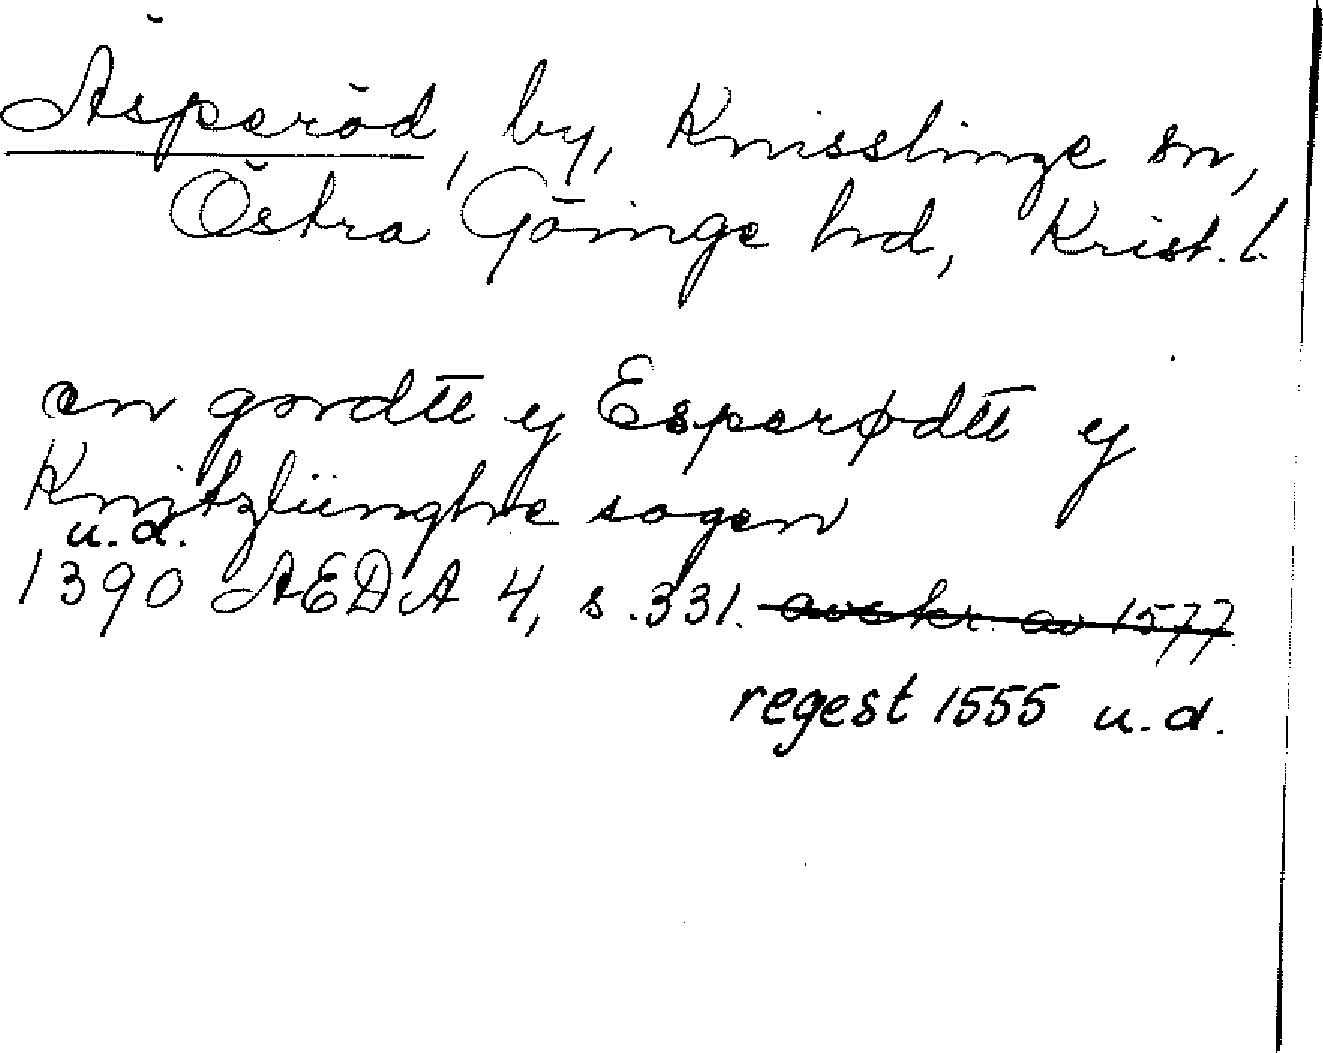 Äsperöd, by, Knisslinge sn,
Östra Göinge hd, Krist. l.
en gordtt y Esperødtt y
Knitzlünghe sogen
u.d.
1390 ÆDA 4, s. 331. avskr. av 1577.
regest 1555 u.d.